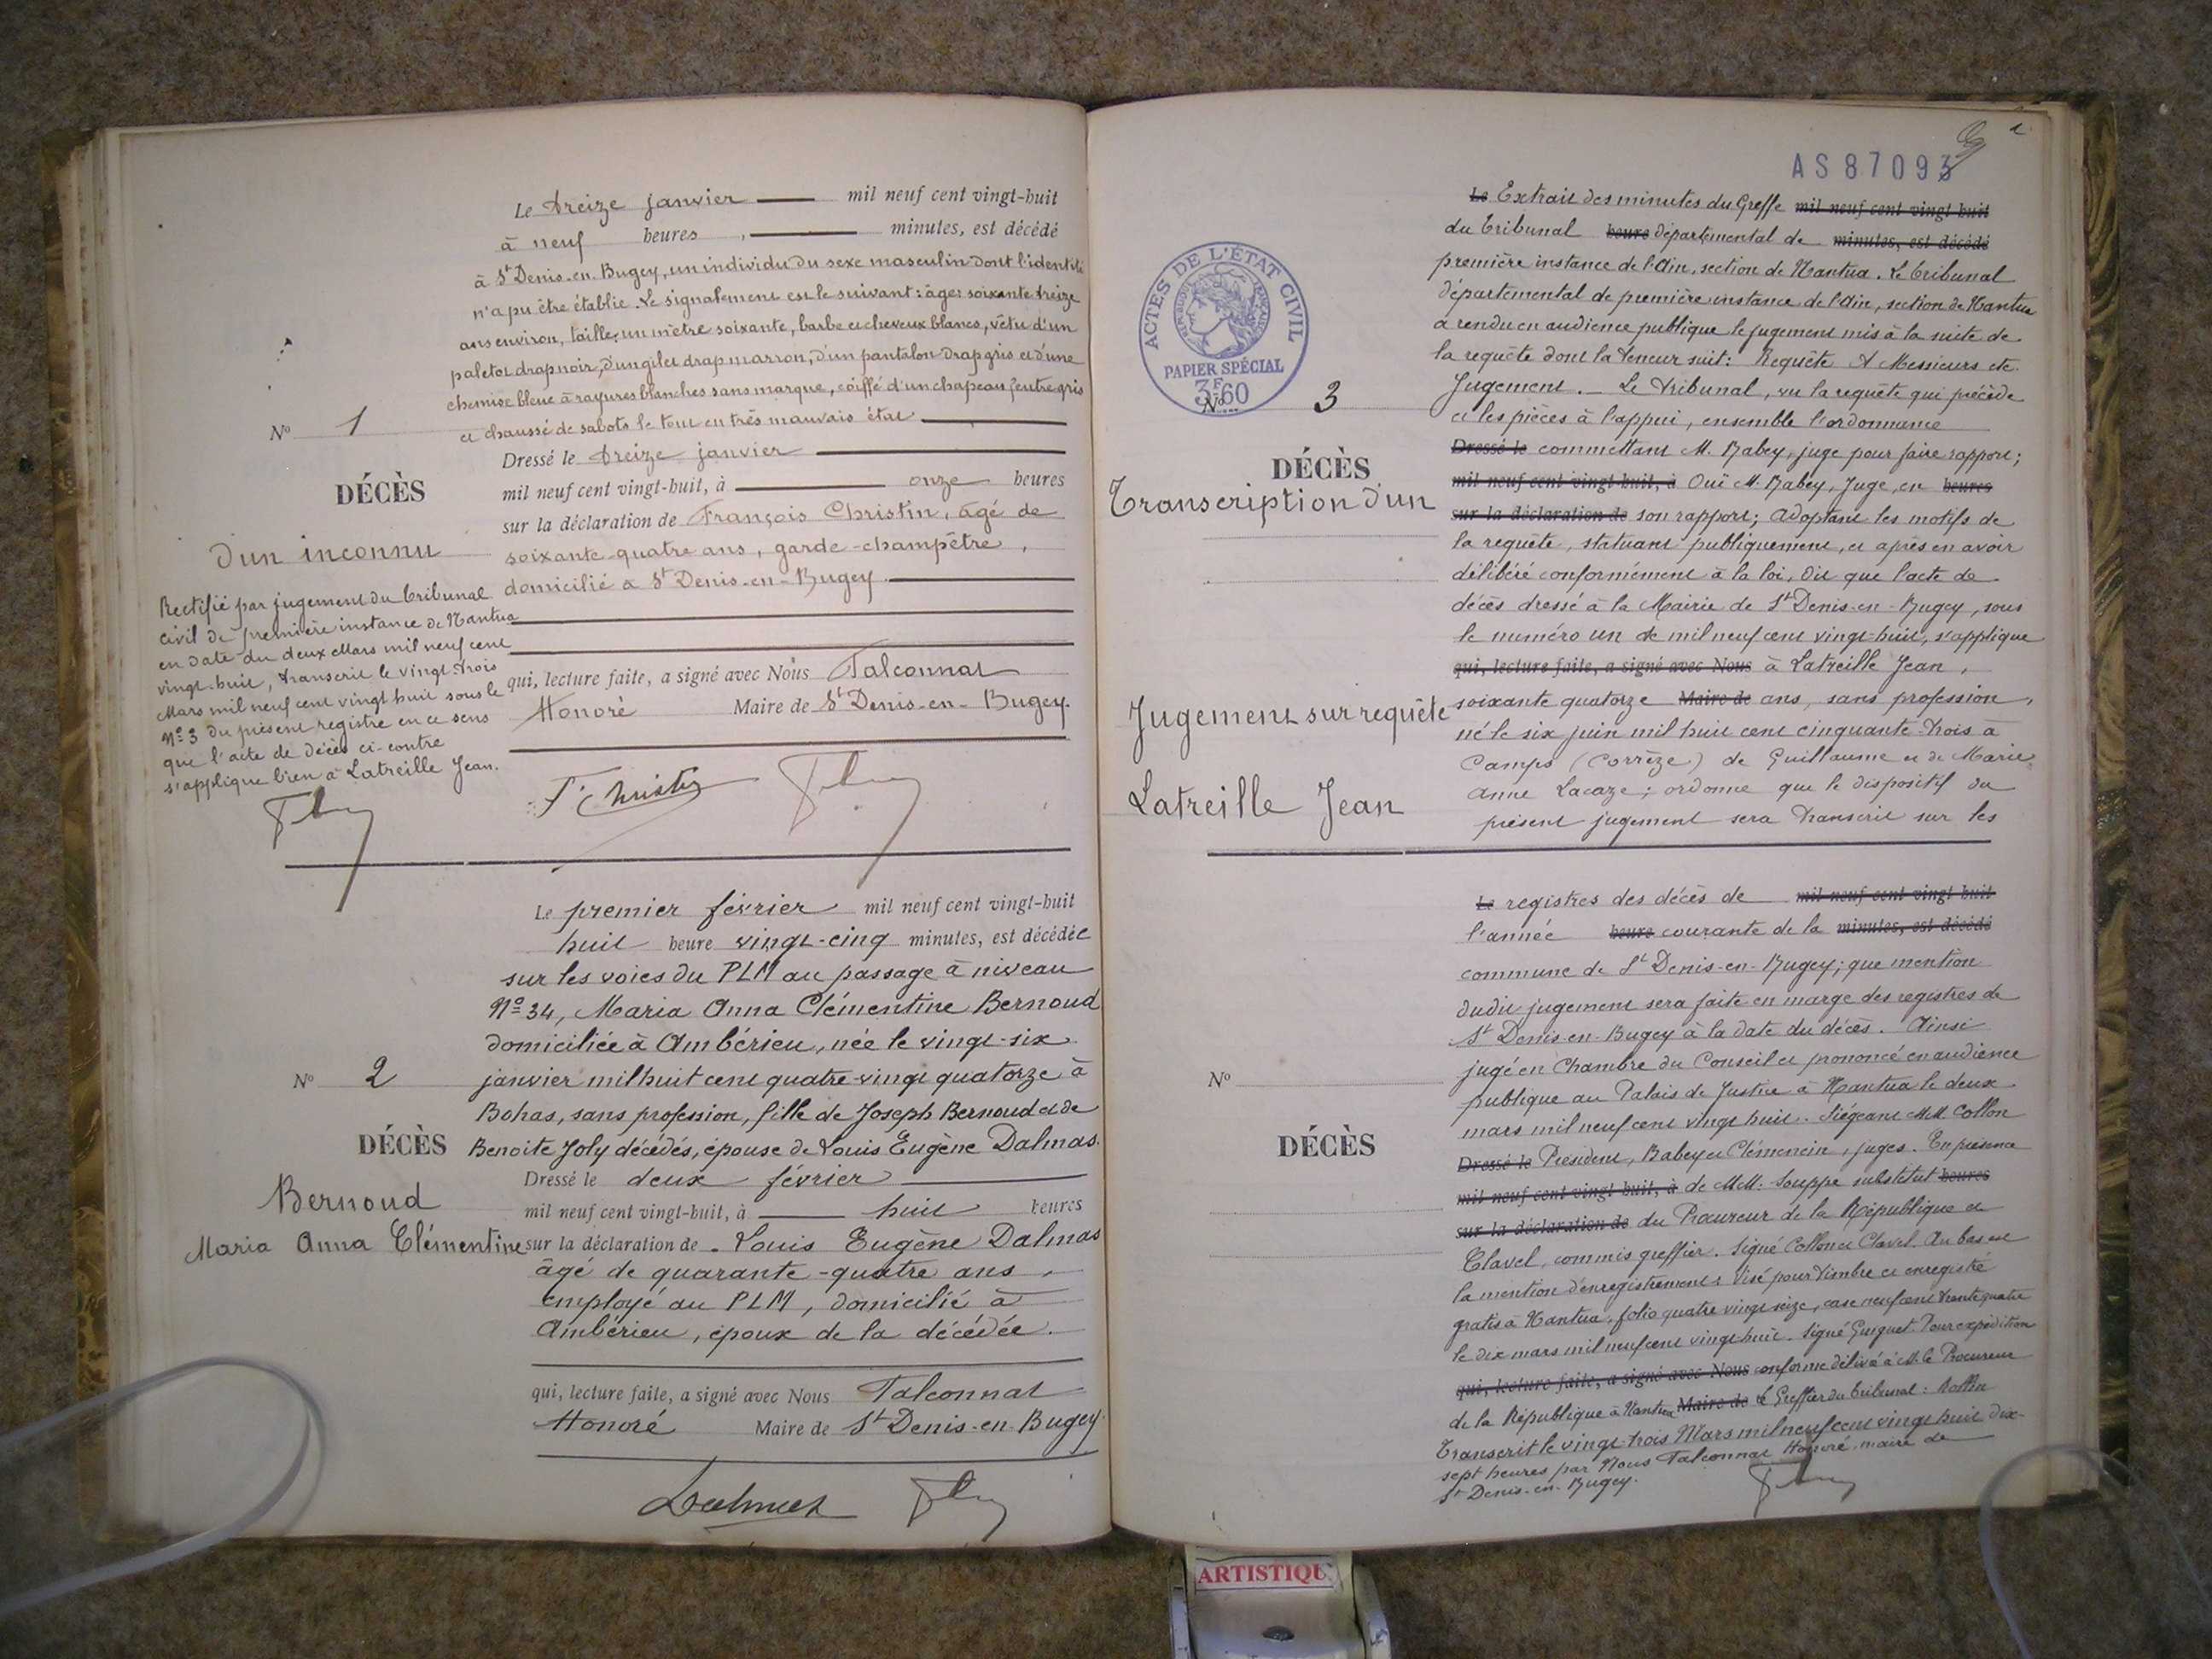 Le treize janvier mil neuf cent vingt-huit
à neuf heures, minutes, est décédé
à St Denis-en-Bugey, un individu du sexe masculin dont l'identité
n'a pu être établie. Le signalement est le suivant: âge: soixante treize
ans environ, taille: un mètre soixante, barbe et cheveux blancs, vêtu d'un
paletot drap noir, d'un gilet drap marron, d'un pantalon drap gris et d'une
chemise bleue à rayures blanches sans marque, coiffé d'un chapeau feutre gris
et chaussé de sabots le tout en très mauvais état
Nº 1
DÉCÈS
d'un inconnu
Dressé le treize janvier
mil neuf cent vingt-huit, à onze heures
sur la déclaration de François Christin, âgé de
soixante-quatre ans, garde-champêtre,
domicilié à St Denis-en-Bugey
qui, lecture faite, a signé avec Nous Falconnat
Honoré Maire de St Denis-en-Bugey.
Rectifié par jugement du tribunal
civil de première instance de Nantua
en date du deux Mars mil neuf cent
vingt-huit, transcrit le vingt-trois
Mars mil neuf cent vingt huit sous le
Nº 3 du présent registre en ce sens
que l'acte de décès ci-contre
s'applique bien à Latreille Jean.
F. Christin
Le premier février mil neuf cent vingt-huit
huit heure vingt-cinq minutes, est décédée
sur les voies du PLM au passage à niveau
Nº 34, Maria Anna Clémentine Bernoud
domiciliée à Ambérieu, née le vingt-six
janvier mil huit cent quatre-vingt quatorze à
Bohas, sans profession, fille de Joseph Bernoud et de
Benoite Joly décédés, épouse de Louis Eugène Dalmas.
Nº 2
DÉCÈS
Bernoud
Maria Anna Clémentine
Dressé le deux février
mil neuf cent vingt-huit, à huit heures
sur la déclaration de Louis Eugène Dalmas
âgé de quarante-quatre ans,
employé au PLM, domicilié à
Ambérieu, époux de la décédée.
qui, lecture faite, a signé avec Nous Falconnat
Honoré Maire de St Denis-en-Bugey
Dalmas
AS 87093
ACTES DE L'ÉTAT CIVIL
RÉPUBLIQUE FRANÇAISE
PAPIER SPÉCIAL
3F60
Nº 3
DÉCÈS
Transcription d'un
Jugement sur requête
Latreille Jean
Le Extrait des minutes du Greffe mil neuf cent vingt-huit
du tribunal heure départemental de minutes, est décédé
première instance de l'Ain, section de Nantua. Le tribunal
départemental de première instance de l'Ain, section de Nantua
a rendu en audience publique le jugement mis à la suite de
la requête dont la teneur suit: Requête A Messieurs etc.
Jugement. - Le Tribunal, vu la requête qui précède
et les pièces à l'appui, ensemble l'ordonnance
Dressé le commettant M. Rabey, juge pour faire rapport;
mil neuf cent vingt-huit, à Ouï M. Rabey, Juge, en heures
sur la déclaration de son rapport; Adoptant les motifs de
la requête, statuant publiquement, et après en avoir
délibéré conformément à la loi, Dit que l'acte de
décès dressé à la Mairie de St Denis-en-Bugey, sous
le numéro un de mil neuf cent vingt-huit, s'applique
qui, lecture faite, a signé avec Nous à Latreille Jean,
soixante quatorze Maire de ans, sans profession,
né le six juin mil huit cent cinquante-trois à
Camps (Corrèze) de Guillaume et de Marie
Anne Lacaze; ordonne que le dispositif du
présent jugement sera transcrit sur les
Le registres des décès de mil neuf cent vingt-huit
l'année heure courante de la minutes, est décédé
commune de St Denis-en-Bugey; que mention
dudit jugement sera faite en marge des registres de
St Denis-en-Bugey à la date du décès. Ainsi
jugé en Chambre du Conseil et prononcé en audience
publique au Palais de Justice à Nantua le deux
mars mil neuf cent vingt huit. Siégeant MM. Collon
Nº
DÉCÈS
Dressé le Président, Babey et Clémencin, juges. En présence
mil neuf cent vingt-huit, à de MM: Souppe substitut heures
sur la déclaration de du Procureur de la République et
Clavel, commis greffier. Signé Collon et Clavel. Au bas est
la mention d'enregistrement: Visé pour timbre et enregistré
gratis à Nantua, folio quatre vingt seize, case neuf cent trente quatre
le dix mars mil neuf cent vingt-huit. Signé Guiguet. Pour expédition
qui, lecture faite, a signé avec Nous conforme délivré à M. le Procureur
de la République à Nantua Maire de le Greffier du tribunal: Rollin
Transcrit le vingt-trois Mars mil neuf cent vingt huit dix-
sept heures par Nous Falconnat Honoré, maire de
St Denis-en-Bugey.
ARTISTIQU